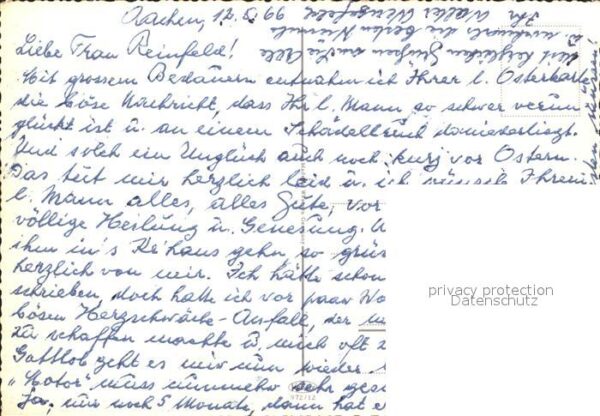 Aachen, 17.
Liebe Frau Reinfeld!
Mit grossem Bedauern entnahm ich Ihrer l. Osterkarte
die böse Nachricht, dass Ihr l. Mann so schwer verun
glückt ist u. an einem Schädelbruch daniederliegt.
Und solch ein Unglück auch noch kurz vor Ostern.
Das tut mir herzlich leid u. ich wünsch Ihrem
l. Mann alles, alles Gute, vor
völlige Heilung u. Genesung.
ihm in's Kr'haus gehn, so grüs
herzlich von mir. Ich hätte schon
schrieben, doch hatte ich vor paar Wo
bösen Herzschwäche-Anfall, der
zu schaffen machte u. mich oft z
Gottlob geht es mir nun wieder
"Motor" muss nunmehr sehr ges
Ja, nur noch 5 Monate, dann hat e
Mit herzlichen Grüßen an Sie Alle
Ihr Walter
privacy protection
Datenschutz